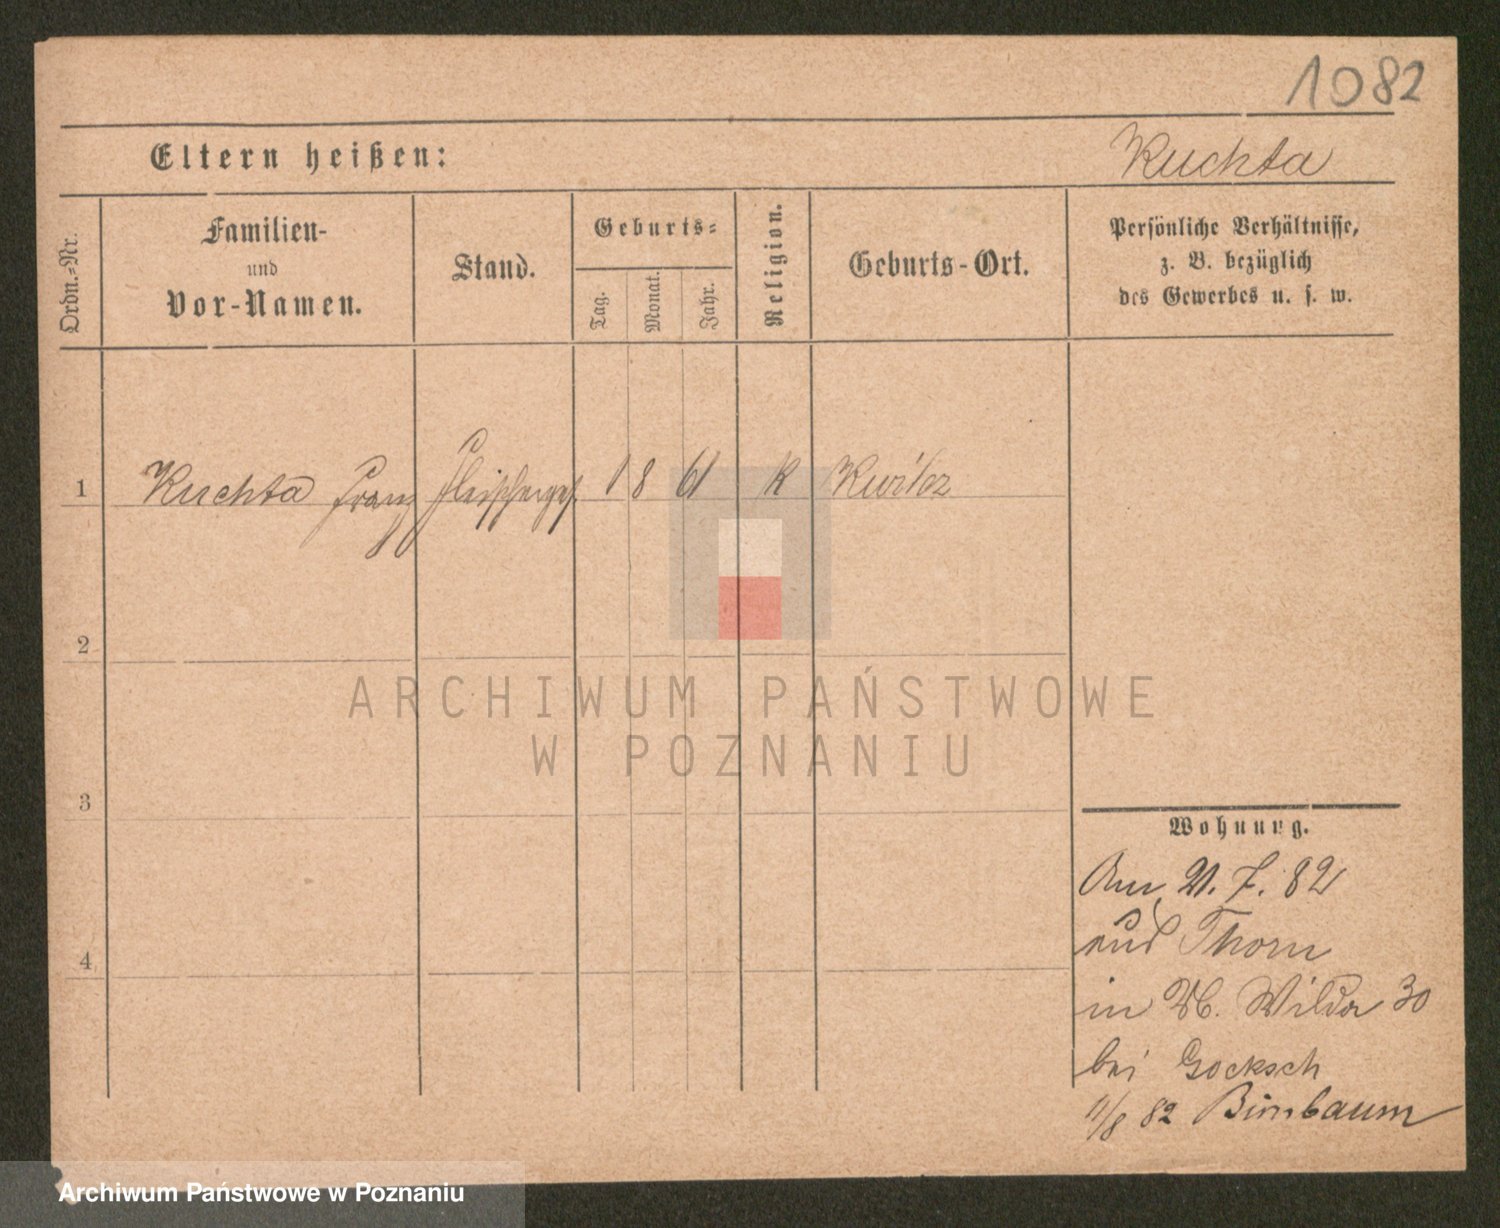 1082
Eltern heißen:
Kuchta
Ordn.=Nr.
Familien-
und
Vor-Namen.
Stand.
Geburts=
Tag.
Monat.
Jahr.
Religion.
Geburts-Ort.
Persönliche Verhältnisse,
z. B. bezüglich
des Gewerbes u. s. w.
1 Kuchta Franz Fleischerges. 1 8 61 K Kwilcz
2
3
4
Wohnung.
Am 21. 7. 82
aus Thorn
in Wilda 30
bei Gocksch
11/8 82 Birnbaum
ARCHIWUM PAŃSTWOWE
W POZNANIU
Archiwum Państwowe w Poznaniu